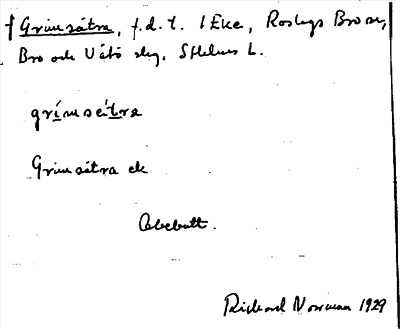 † Grimsätra, f.d. t. 1 Eke, Roslags Bro sn,
Bro och Vätö skg, Sthlms L.
grímsétra
Grimsätra ek
Richard Norrman 1929